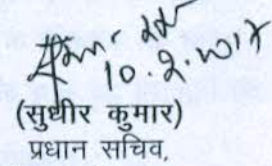 10.2.2017
(सुधीर कुमार)
प्रधान सचिव,